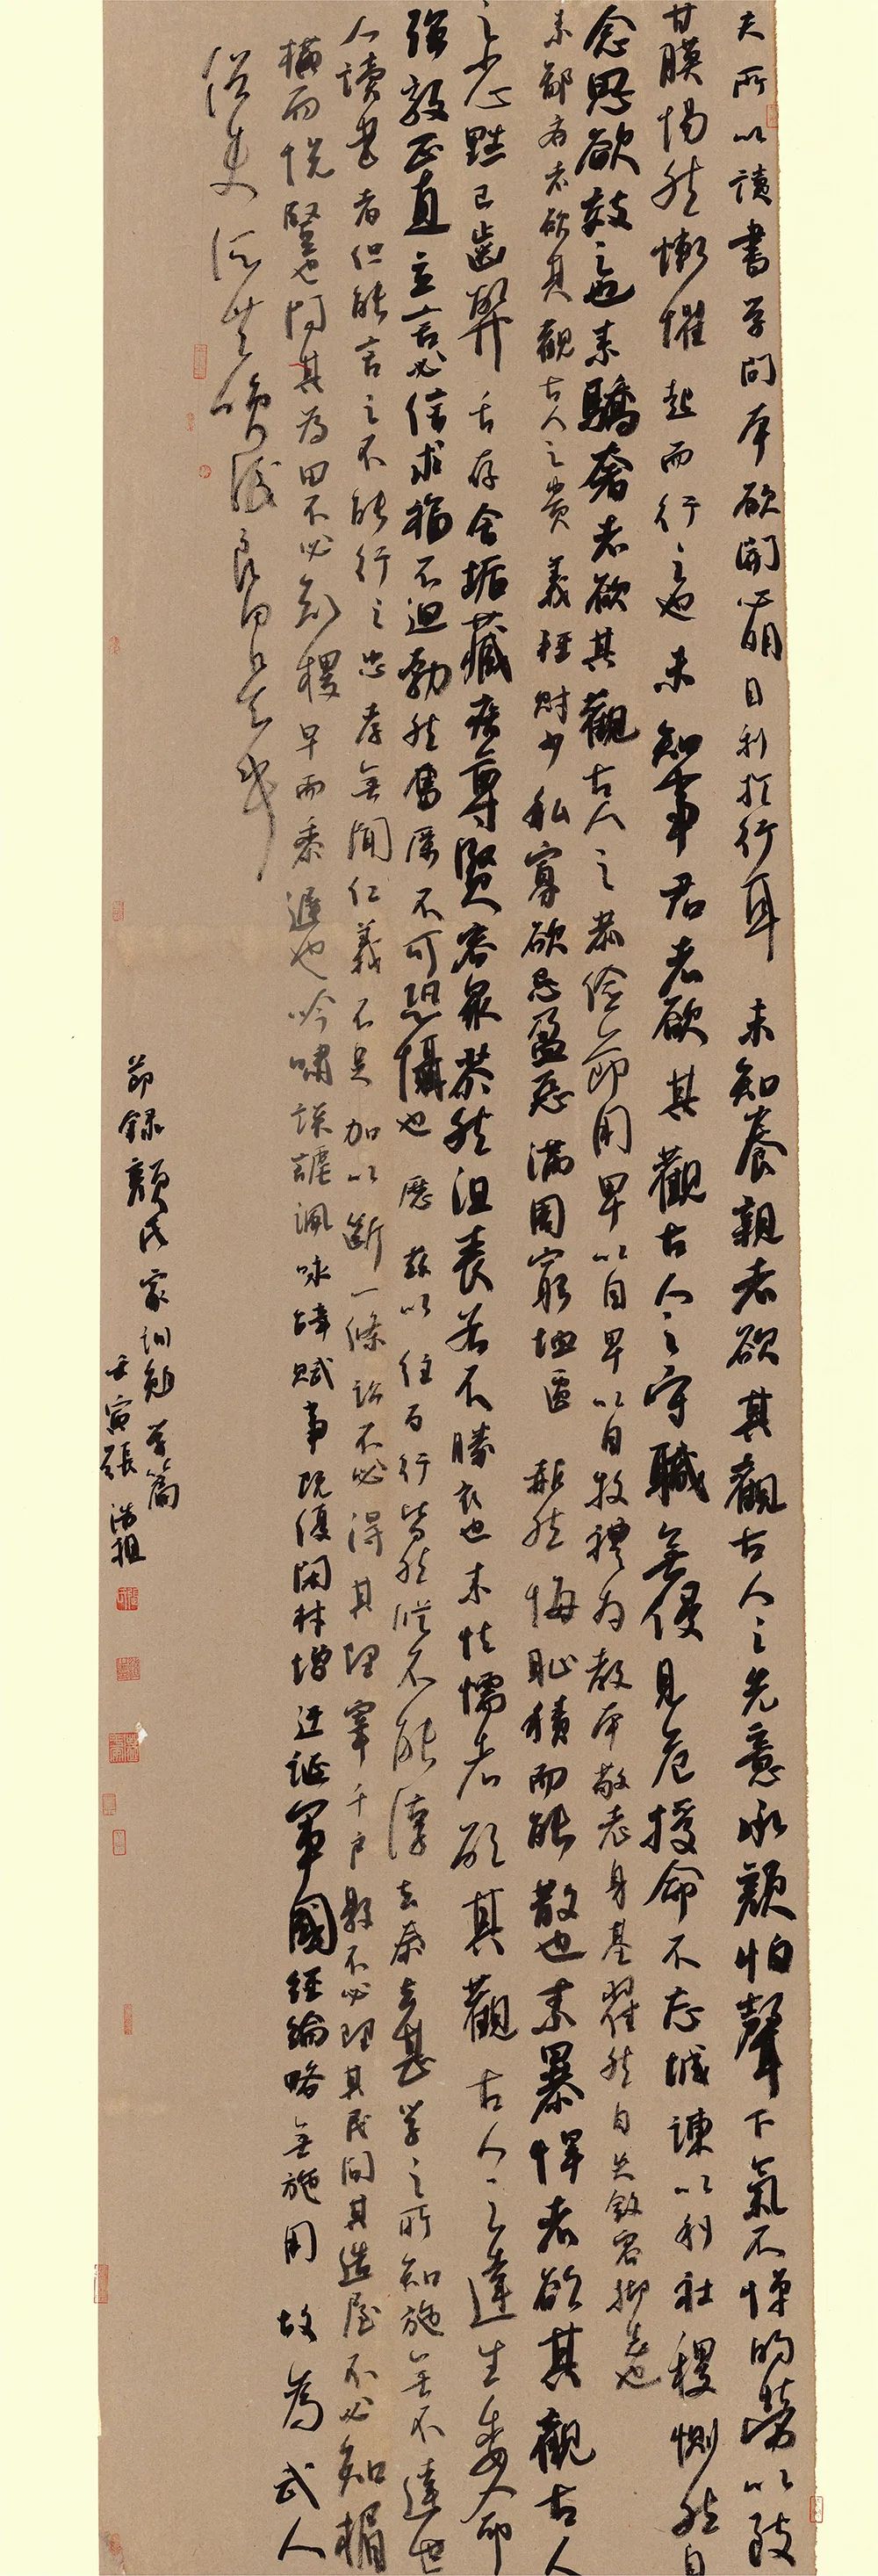 夫所以讀書学問本欲開心明目利於行耳未知養親者欲其觀古人之先意承顔怡聲下氣不憚劬勞以致
甘腝惕然慚懼起而行之也未知事君者欲其觀古人之守職無侵見危授命不忘誠諫以利社稷惻然自
念思欲效之也素驕奢者欲其觀古人之恭儉節用卑以自卑以自牧禮為教本敬者身基瞿然自失斂容抑志也
素鄙吝者欲其觀古人之貴義輕財少私寡欲忌盈惡滿周窮恤匱赧然悔恥積而能散也素暴悍者欲其觀古人
之小心黜己齒弊舌存含垢藏疾尊賢容衆苶然沮喪若不勝衣也未怯懦者欲其觀古人之達生委命
強毅正直立言必信求福不回勃然奮厲不可恐懾也歷茲以往百行皆然縱不能淳去泰去甚学之所知施無不達世
人讀書者但能言之不能行之忠孝無聞仁義不足加以斷一條訟不必得其理宰千戶縣不必理其民問其造屋不必知楣
橫而梲豎也問其為田不必知稷早而黍遲也吟嘯談謔諷咏辭賦事既優閑材增迂誕軍國經綸略無施用故為武人
俗吏所共嗤詆良由是乎
節録顔氏家訓勉学篇
壬寅張浩祖